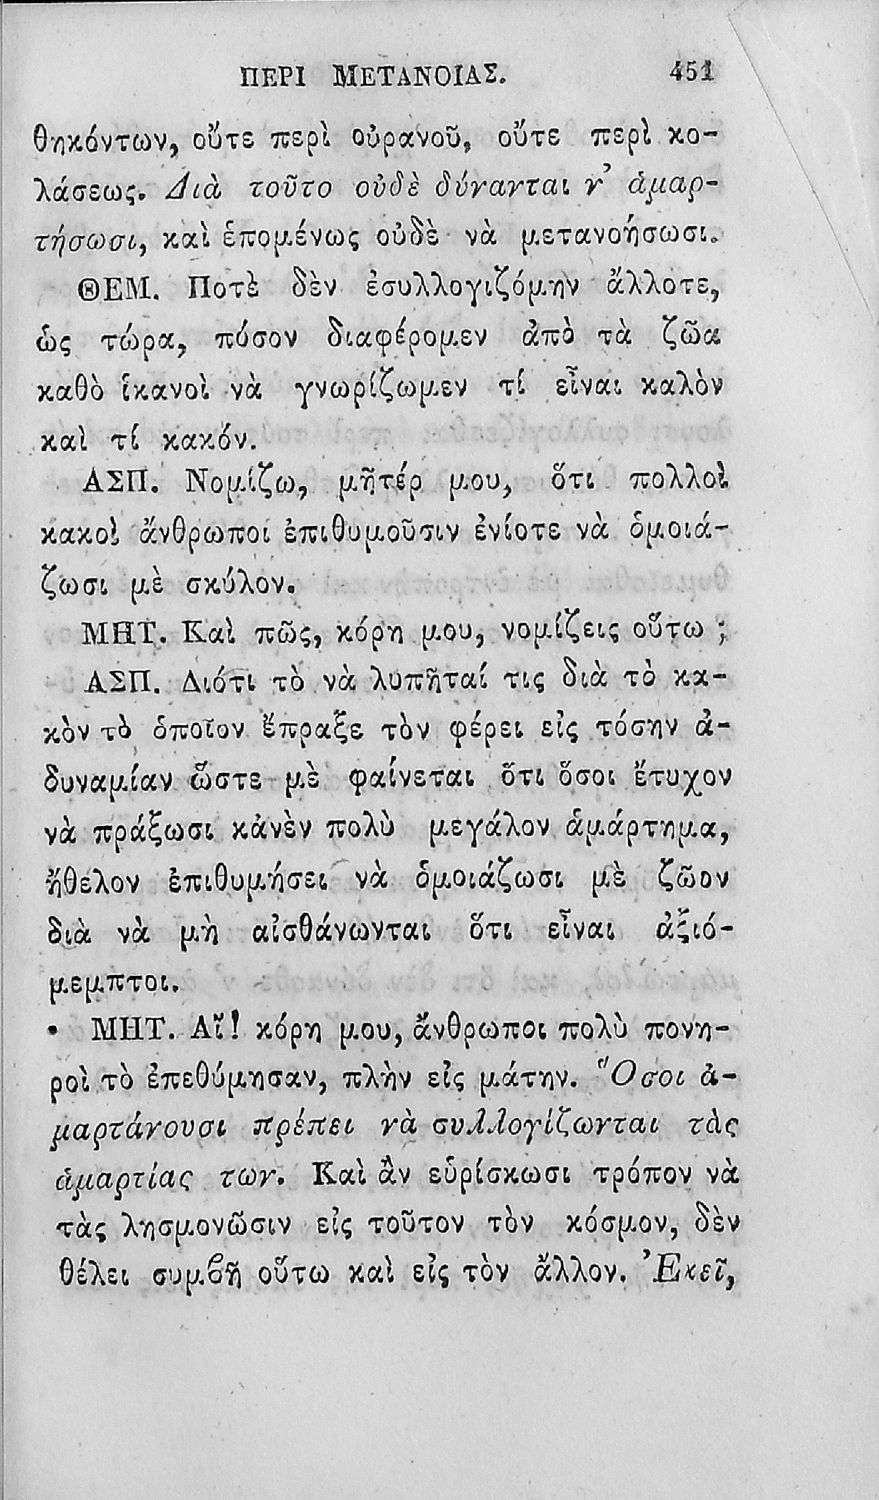 ΠΕΡΙ ΜΕΤΑΝΟΙΑΣ. 451
θηκόντων, οὔτε περὶ οὐρανοῦ, οὔτε περὶ κο-
λάσεως. Διὰ τοῦτο οὐδὲ δύνανται ν’ ἁμαρ-
τήσωσι, καὶ ἑπομένως οὐδὲ νὰ μετανοήσωσι.
ΘΕΜ. Ποτὲ δὲν ἐσυλλογιζόμην ἄλλοτε,
ὡς τώρα, πόσον διαφέρομεν ἀπὸ τὰ ζῶα
καθὸ ἱκανοὶ νὰ γνωρίζωμεν τί εἶναι καλὸν
καὶ τί κακόν.
ΑΣΠ. Νομίζω, μῆτέρ μου, ὅτι πολλοὶ
κακοὶ ἄνθρωποι ἐπιθυμοῦσιν ἐνίοτε νὰ ὁμοιά-
ζωσι μὲ σκύλον.
ΜΗΤ. Καὶ πῶς, κόρη μου, νομίζεις οὕτω ;
ΑΣΠ. Διότι τὸ νὰ λυπῆταί τις διὰ τὸ κα-
κὸν τὸ ὁποῖον ἔπραξε τὸν φέρει εἰς τόσην ἀ-
δυναμίαν ὥστε μὲ φαίνεται ὅτι ὅσοι ἔτυχον
νὰ πράξωσι κἀνὲν πολὺ μεγάλον ἁμάρτημα,
ἤθελον ἐπιθυμήσει νὰ ὁμοιάζωσι μὲ ζῶον
διὰ νὰ μὴ αἰσθάνωνται ὅτι εἶναι ἀξιό-
μεμπτοι.
ΜΗΤ. Αἴ! κόρη μου, ἄνθρωποι πολὺ πονη-
ροὶ τὸ ἐπεθύμησαν, πλὴν εἰς μάτην. Ὅσοι ἁ-
μαρτάνουσι πρέπει νὰ συλλογίζωνται τὰς
ἁμαρτίας των. Καὶ ἂν εὑρίσκωσι τρόπον νὰ
τὰς λησμονῶσιν εἰς τοῦτον τὸν κόσμον, δὲν
θέλει συμϐῆ οὕτω καὶ εἰς τὸν ἄλλον. Ἐκεῖ,